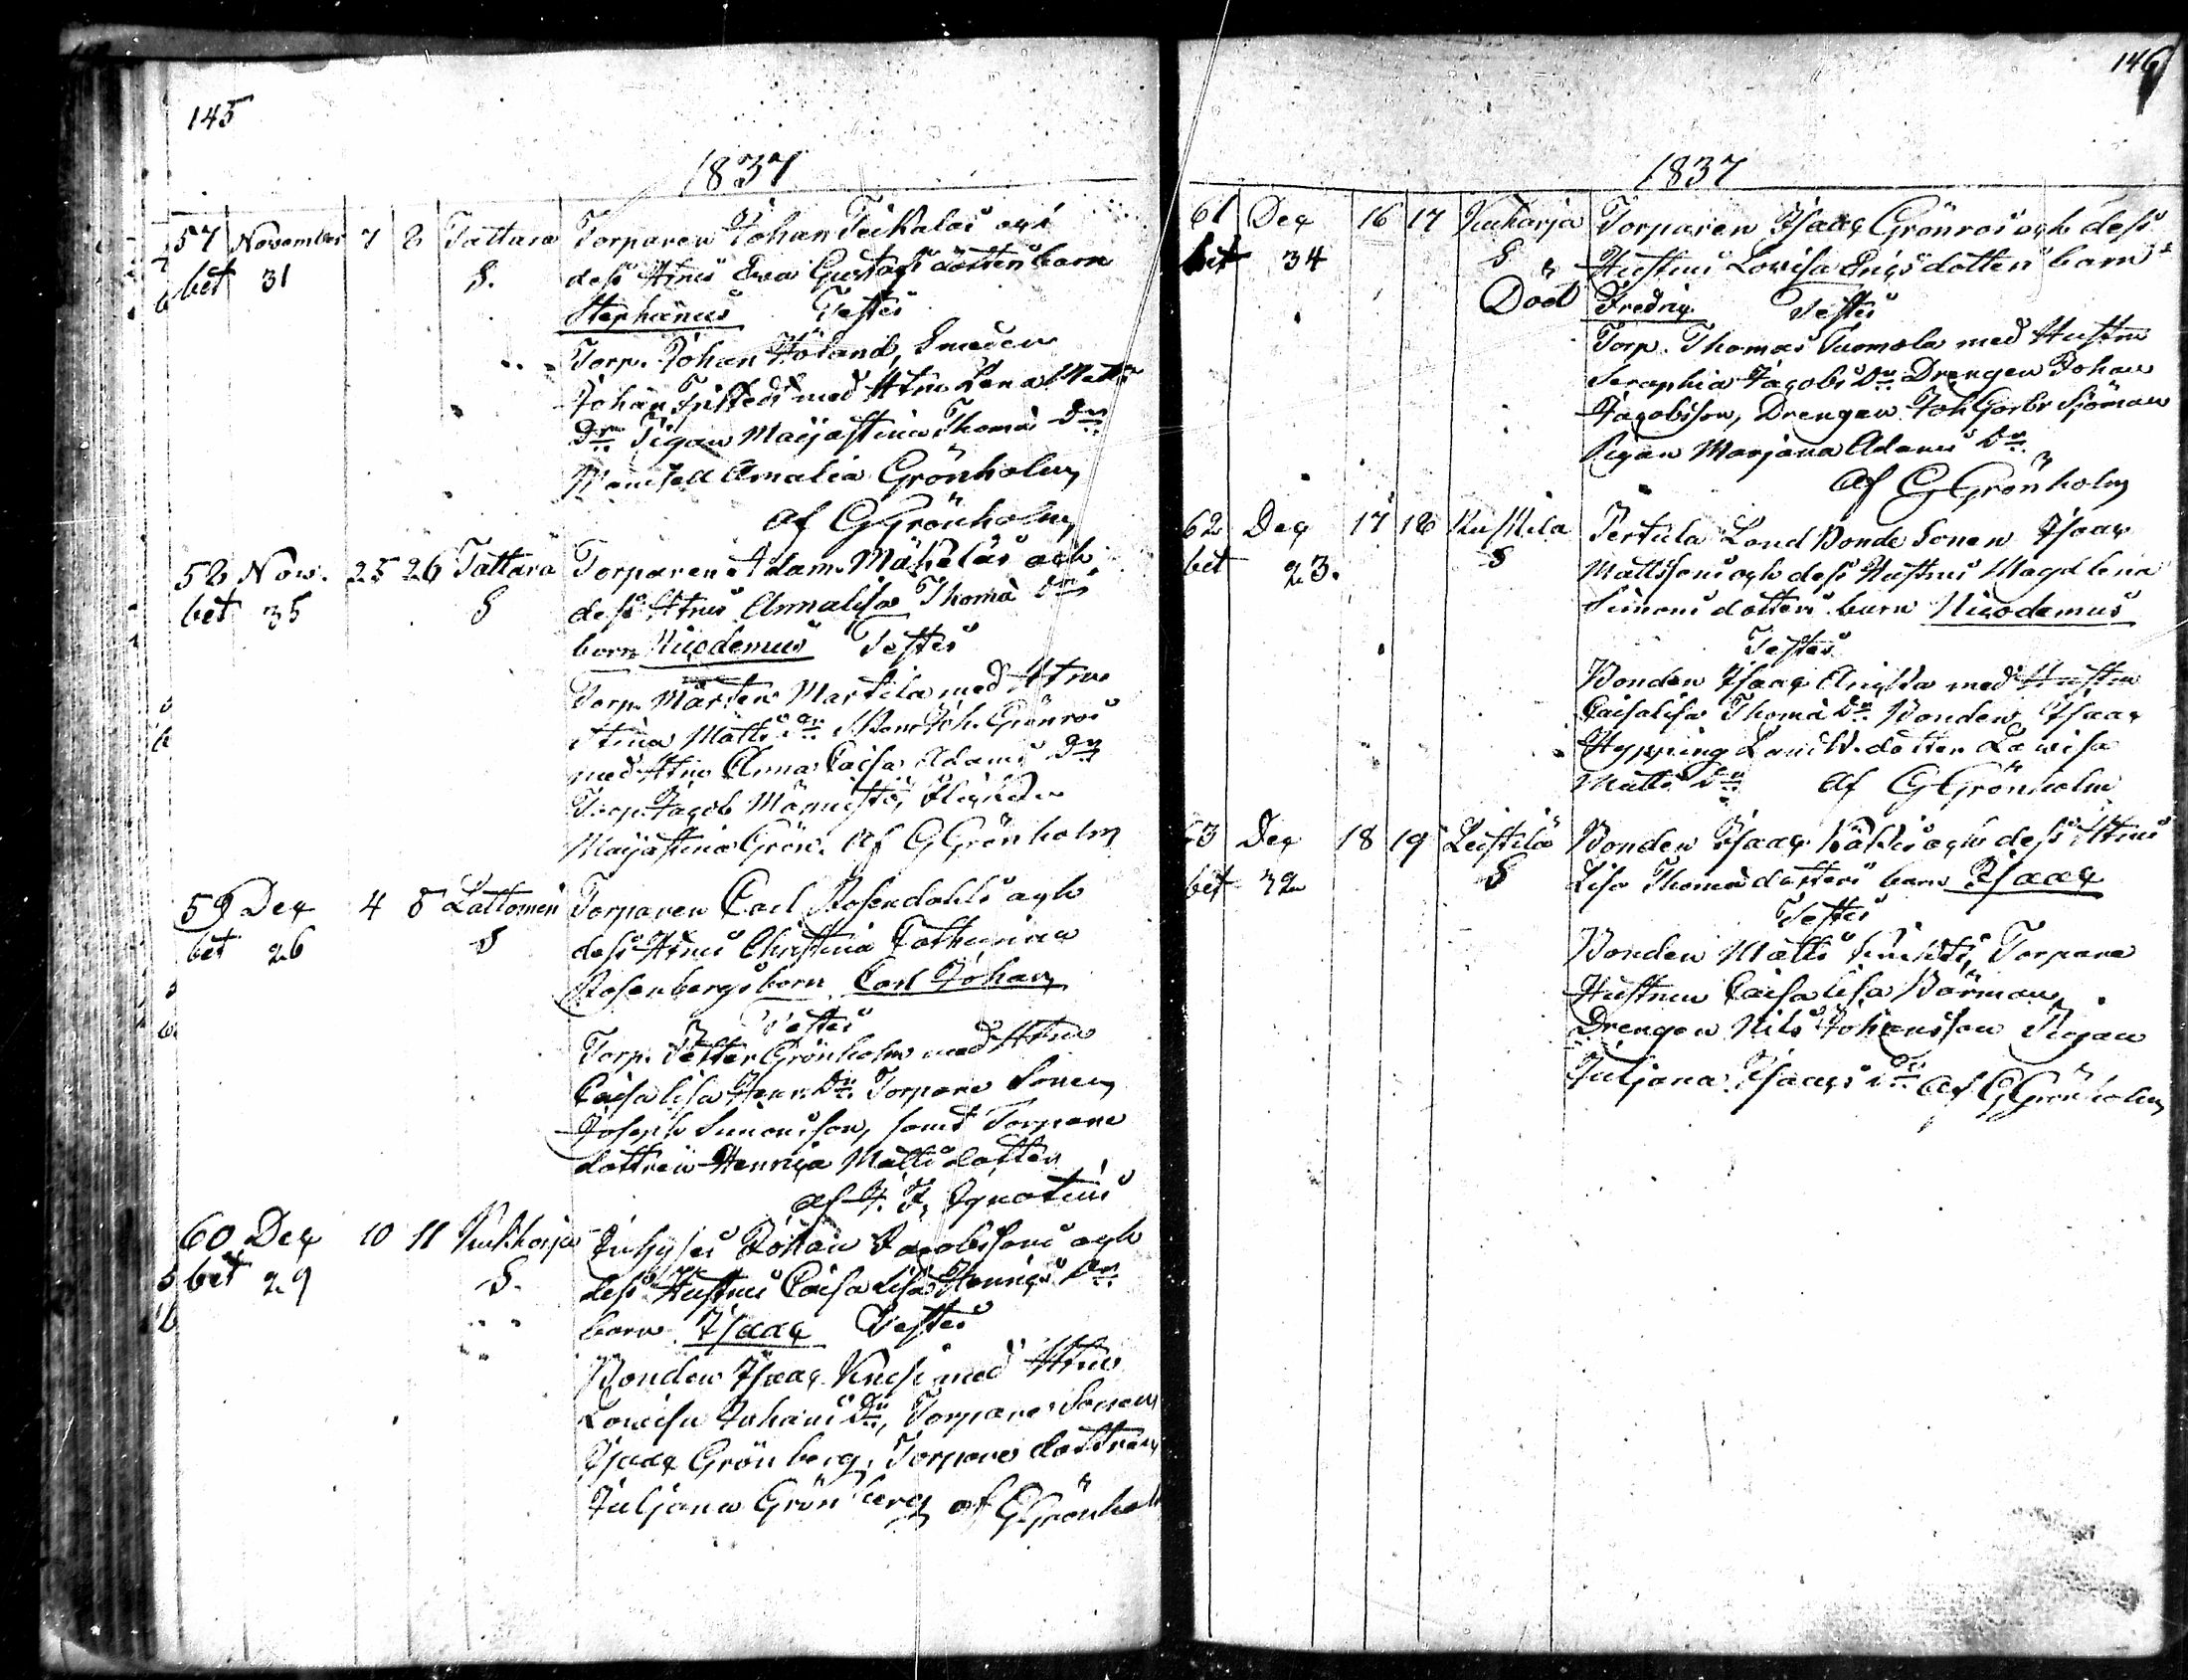 145
1837
57 November 7 8 Tattara Torparen Johan Teikalas och
bet 31 S. dess Htrus Eva Gustafsdotters barn
Stephanus Testes
Torp. Johan Höland, Smeden
Johan med Htru Lena Matts
Dr Pigan Maijastina Thomæ Dr
Mamsell Amalia Grönholm
af G Grönholm
58 Nov. 25 26 Tattara Torparen Adam Mäkeläs och
bet 35 S dess Htrus Annalisa Thomæ Drs
barn Nicodemus Testes
Torp. Mårten Martila med Htru
Stina Matts Dr Joh. Grönros
med Htru Anna Caisa Adams Dr
Torp. Jacob Männistö, Flickan
Maijastina Grön. Af G Grönholm
59 Dec 4 5 Lattomeri Torparen Carl Rosendahls och
bet 26 S dess Htrus Christina Catharina
Rosenbergs barn Carl Johan
Testes
Torp. Petter Grönholm med Htru
Caisa Lisa Henr. Dr. Torpare Sonen
Joseph Simonsson, samt Torpare
dottren Henrica Mattsdotter
af J. Ignatius
60 Dec 10 11 Kukharja Inhyses Johan Jacobssons och
bet 29 S. dess Hustrus Caisa Lisa Henrics Drs
barn Isaac Testes
Bonden Isaac med Htru
Lovisa Johans Dr, Torpare Sonen
Isaac Grönberg, Torpare dottren
Juljana Grönberg af G Grönholm
146
1837
61 Dec 16 17 Kuharja Torparen Isaac Grönros och dess
bet 34 S Hustrus Lovisa Ericsdotters barn
Död Fredric Testes
Torp. Thomas Tuomola med Hustru
Seraphia Jacobs Dr Drengen Johan
Jacobsson, Drengen Joh Gabr Sjöman
Pigan Marjana Adams Dr.
Af G Grönholm
62 Dec 17 18 Ruskila Pertula Land Bonde Sonen Isaac
bet 23. S Mattssons och dess Hustrus Magdlena
Simonsdotters barn Nicodemus
Testes
Bonden Isaac med Hustru
Caisalisa Thomæ Dr. Bonden Isaac
Hypping Landb. dotter Lovisa
Matts Dr Af G Grönholm
63 Dec 18 19 Leistilä Bonden Isaac och dess Htrus
bet 32 S Lisa Thomædotters barn Isaac
Testes
Bonden Matts Torpare
Hustrun Caisa Lisa Börman,
Drengen Nils Johansson Pigan
Juljana Isaacs Dr. Af G Grönholm